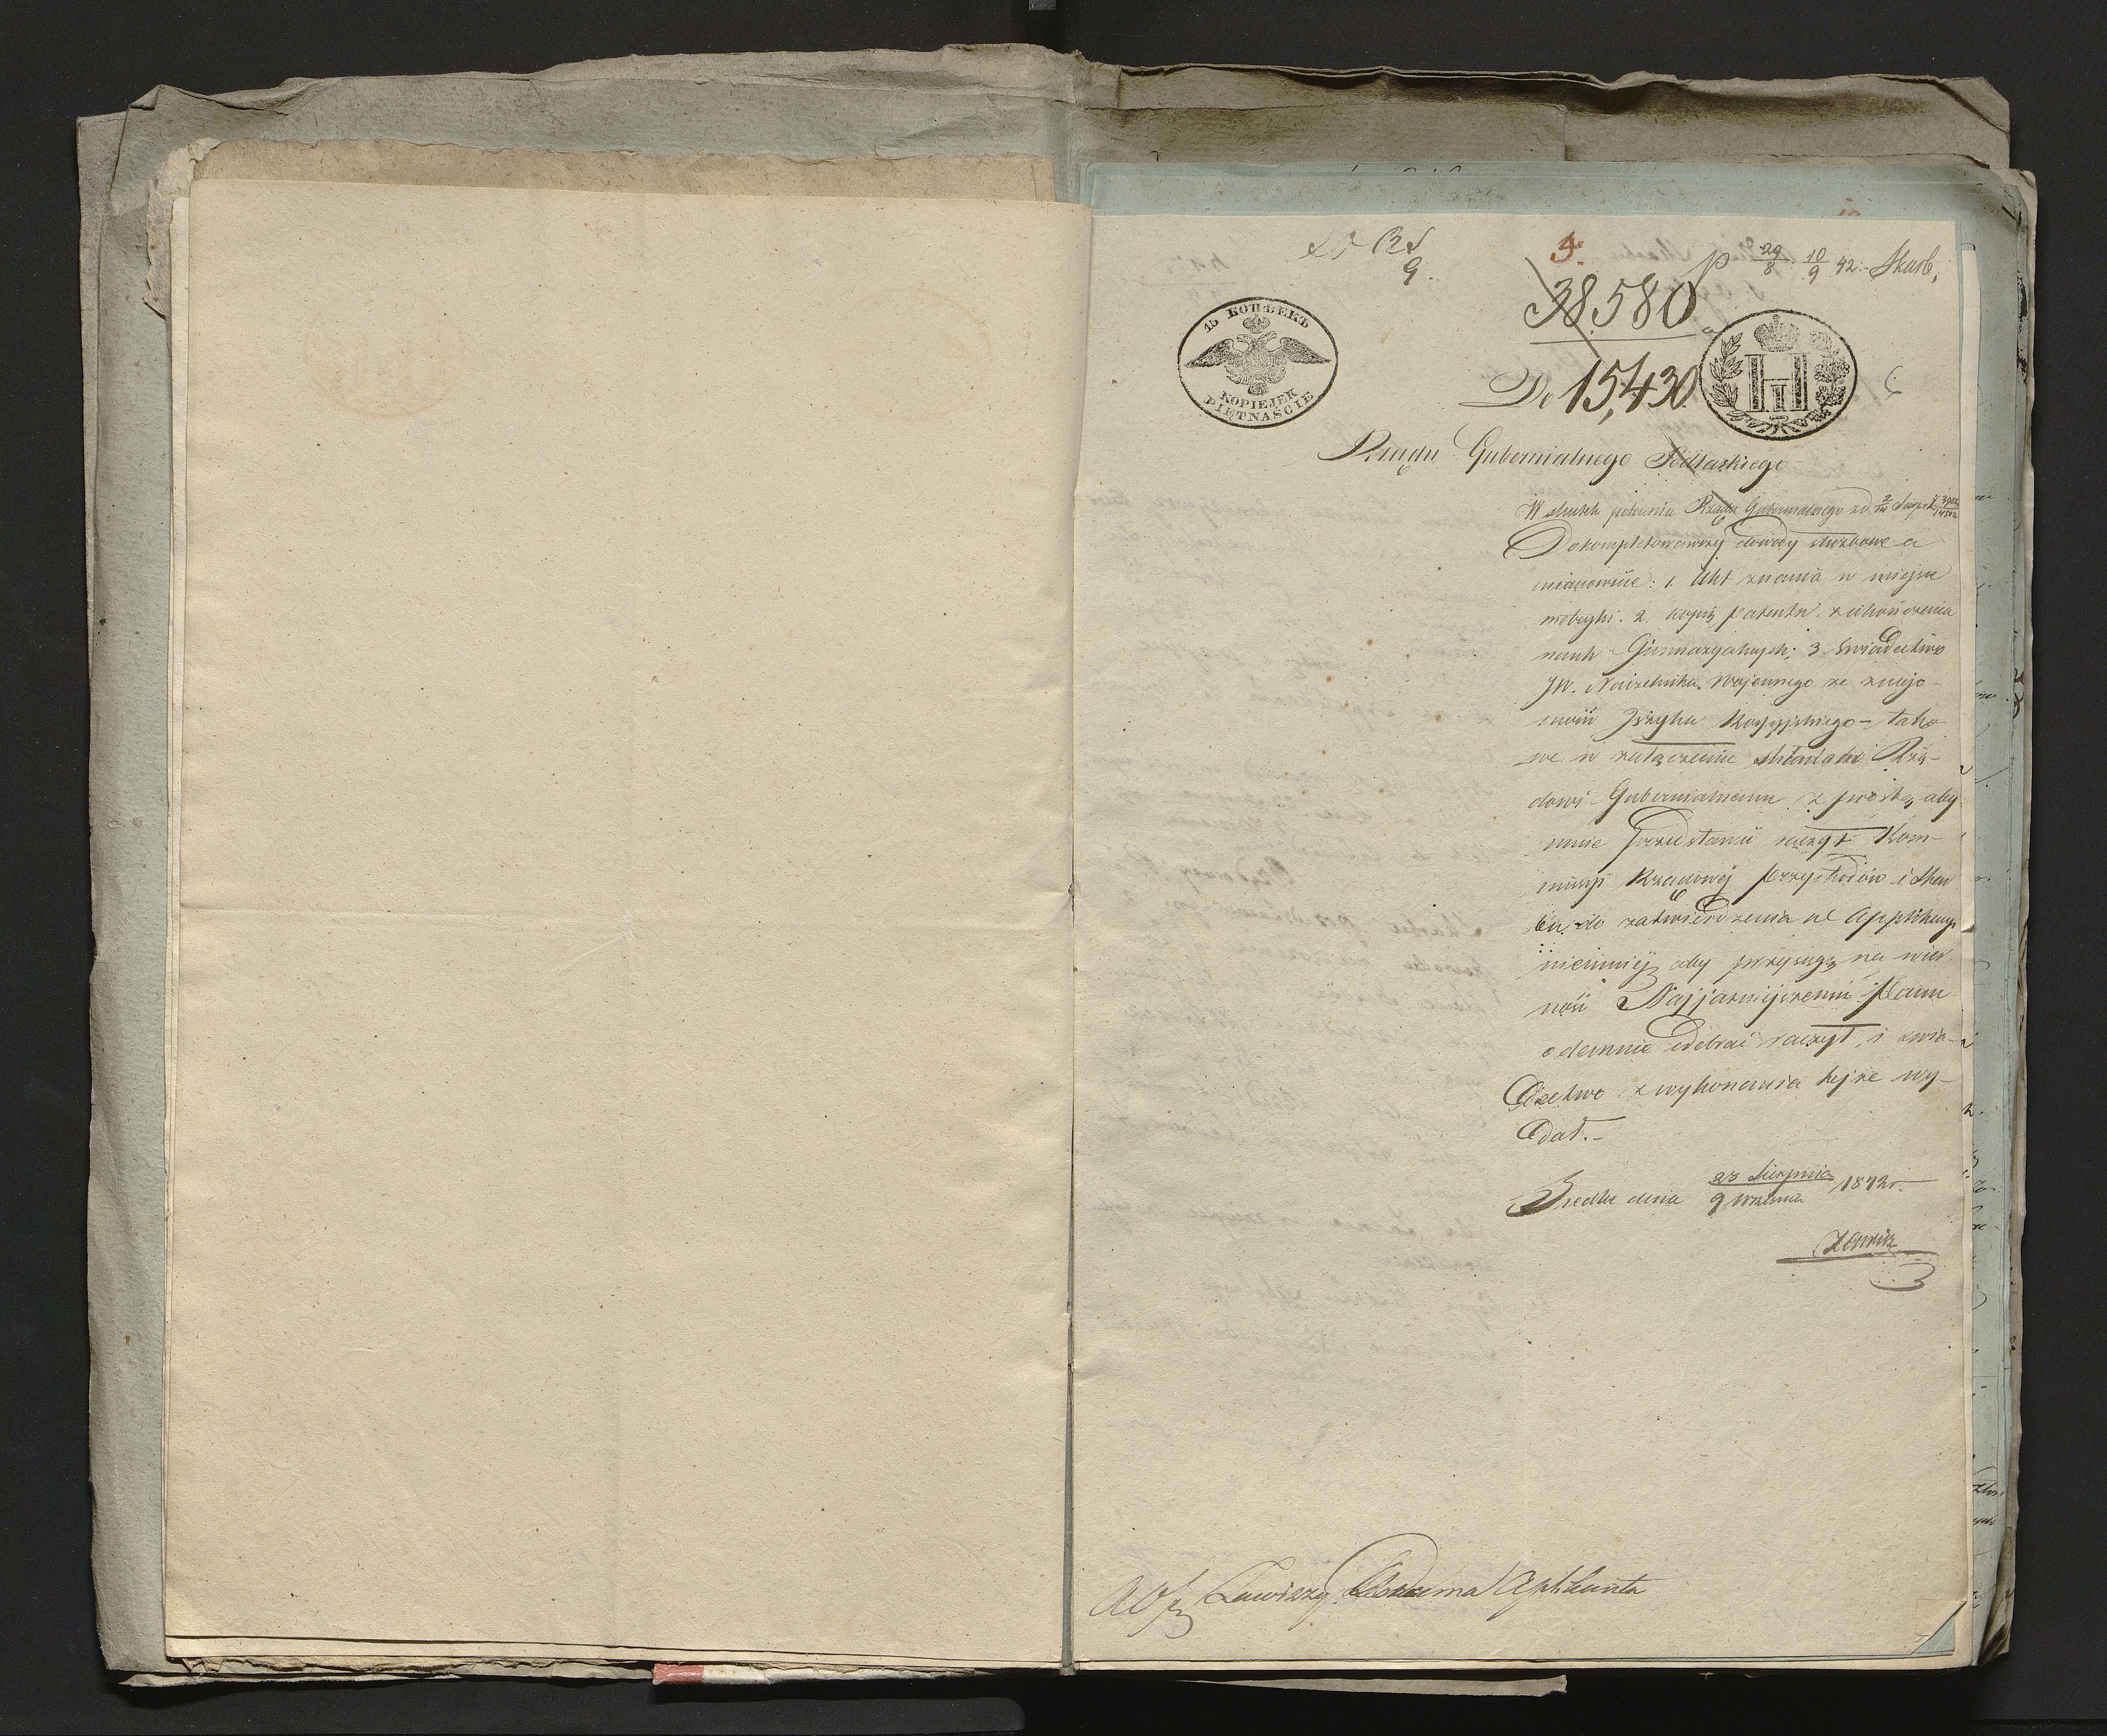 3.
p 29/8 10/9 42. Skarb,
9.
38580
15 КОПѢЕКЪ
KOPIEJEK
PIĘTNAŚCIE
Do 15,430
НI
Rządu Gubernialnego Podlaskiego
W skutek polecenia Rządu Gubernialnego z d. 2/14 Sierp.
Dokompletowawszy dowody służbowe a
mianowicie: 1. Akt znania w miejsce
metryki. 2. kopią patentu z ukończenia
nauk Gimnazyalnych; 3. Świadectwo
JW. Naczelnika Wojennego ze znajo-
mości Języka Rossyjskiego - tako-
we w załączeniu składam Rzą-
dowi Gubernialnemu z prośbą, aby
mnie przedstawić raczył Kom-
missyi Rządowej Przychodów i Skar
bu do zatwierdzenia na Applikacyi
niemniej aby przysięgę na wier-
ność Najjaśniejszemu Panu
odemnie odebrać raczył, i świa-
dectwo z wykonania tejże wy-
dał.-
Siedlce dnia 28 Sierpnia / 9 Września 1842 r.
Zawisza
Zawiszy Adama Aplikanta